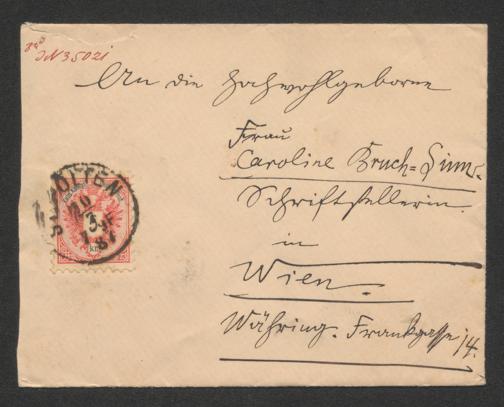 JN 35021
An die hochwohlgeborne
Frau
Caroline Bruch=Sinn.
Schriftstellerin
in
Wien.
Währing. Frankgasse 14.
ST. PÖLTEN
87